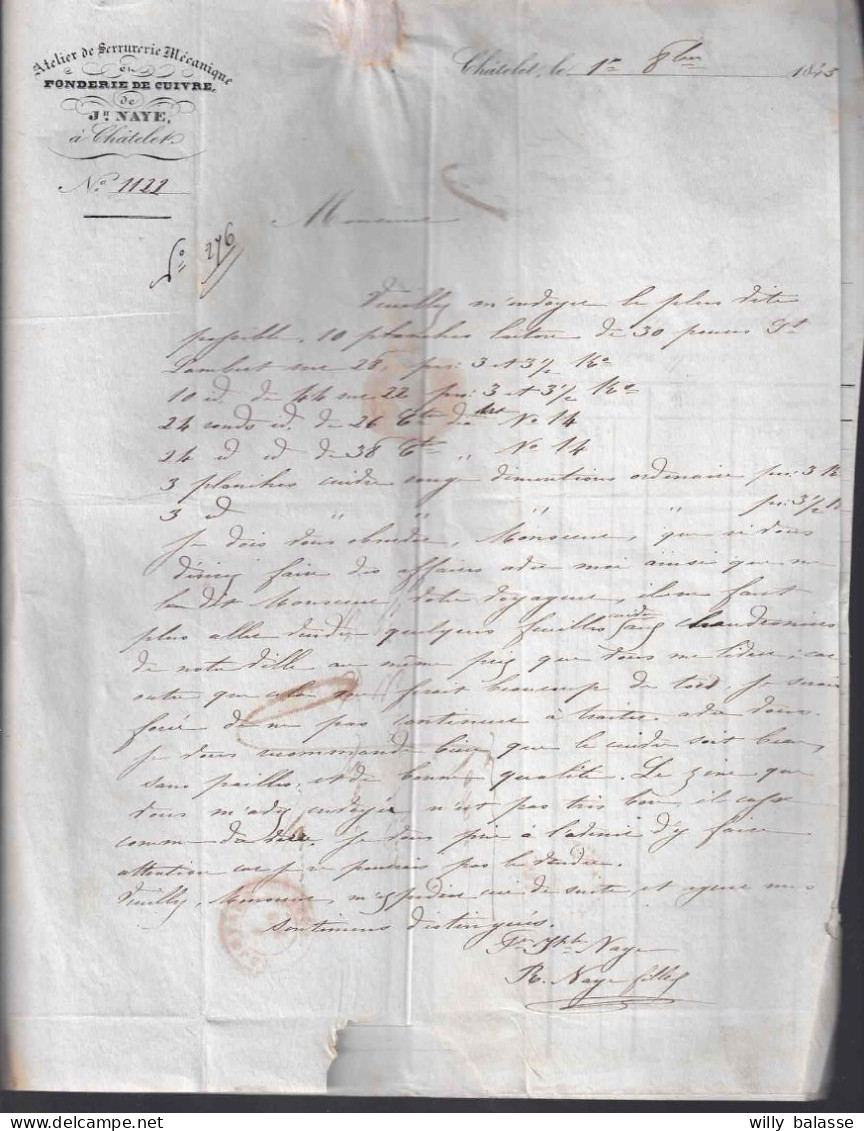 Atelier de Serrurerie Mécanique
et
FONDERIE DE CUIVRE,
de
Jh NAYE,
à Châtelet
Châtelet, le 1er 8bre 1845
No. 1122
Fo 276
Monsieur
Veuillez m'envoyer le plus vite
possible, 10 planches laiton de 30 pouces St
Lambert sur 28, pes: 3 et 3 1/2 Ko
10 id. de 44 sur 22 pes: 3 et 3 1/2 Ko
24 ronds id. de 26 Ctes No 14
24 id id de 38 Ctes " No 14
3 planches cuivre rouge dimentions ordinaire pes: 3 K
3 id " " " " pes: 3 1/2 K
Je dois vous observer, Monsieur, que si vous
désirez faire des affaires avec moi ainsi que me
l'a dit Monsieur votre voyageur, il ne faut
plus aller vendre quelques feuilles aux chaudronniers
de notre ville au même prix que vous me livrez, car
outre que cela me ferait beaucoup de tord, je serais
forcé de ne pas continuer à traiter avec vous.
Je vous recommande bien que le cuivre soit beau,
sans pailles, et de bonne qualité. Le zinc que
vous m'avez envoyé n'est pas très bon, il casse
comme du verre, je vous prie à l'avenir d'y faire
attention car je ne pourrais pas le vendre.
Veuillez, Monsieur, m'expédier ceci de suite, et agréer mes
sentimens distingués.
Pr Jph Naye
R. Naye fille
willy balasse